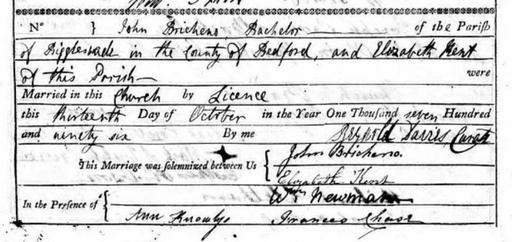 No } John Brichens Bachelor of the Parish
of Biggleswade in the County of Bedford, and Elizabeth Kent
of this Parish were
Married in this Church by Licence
this thirteenth Day of October in the Year One Thousand seven Hundred
and ninety six By me Davies Curate
This Marriage was solemnized between Us { John Bricheno.
Elizabeth Kent
In the Presence of { Wm Newman
Ann Knowlys Frances Chase